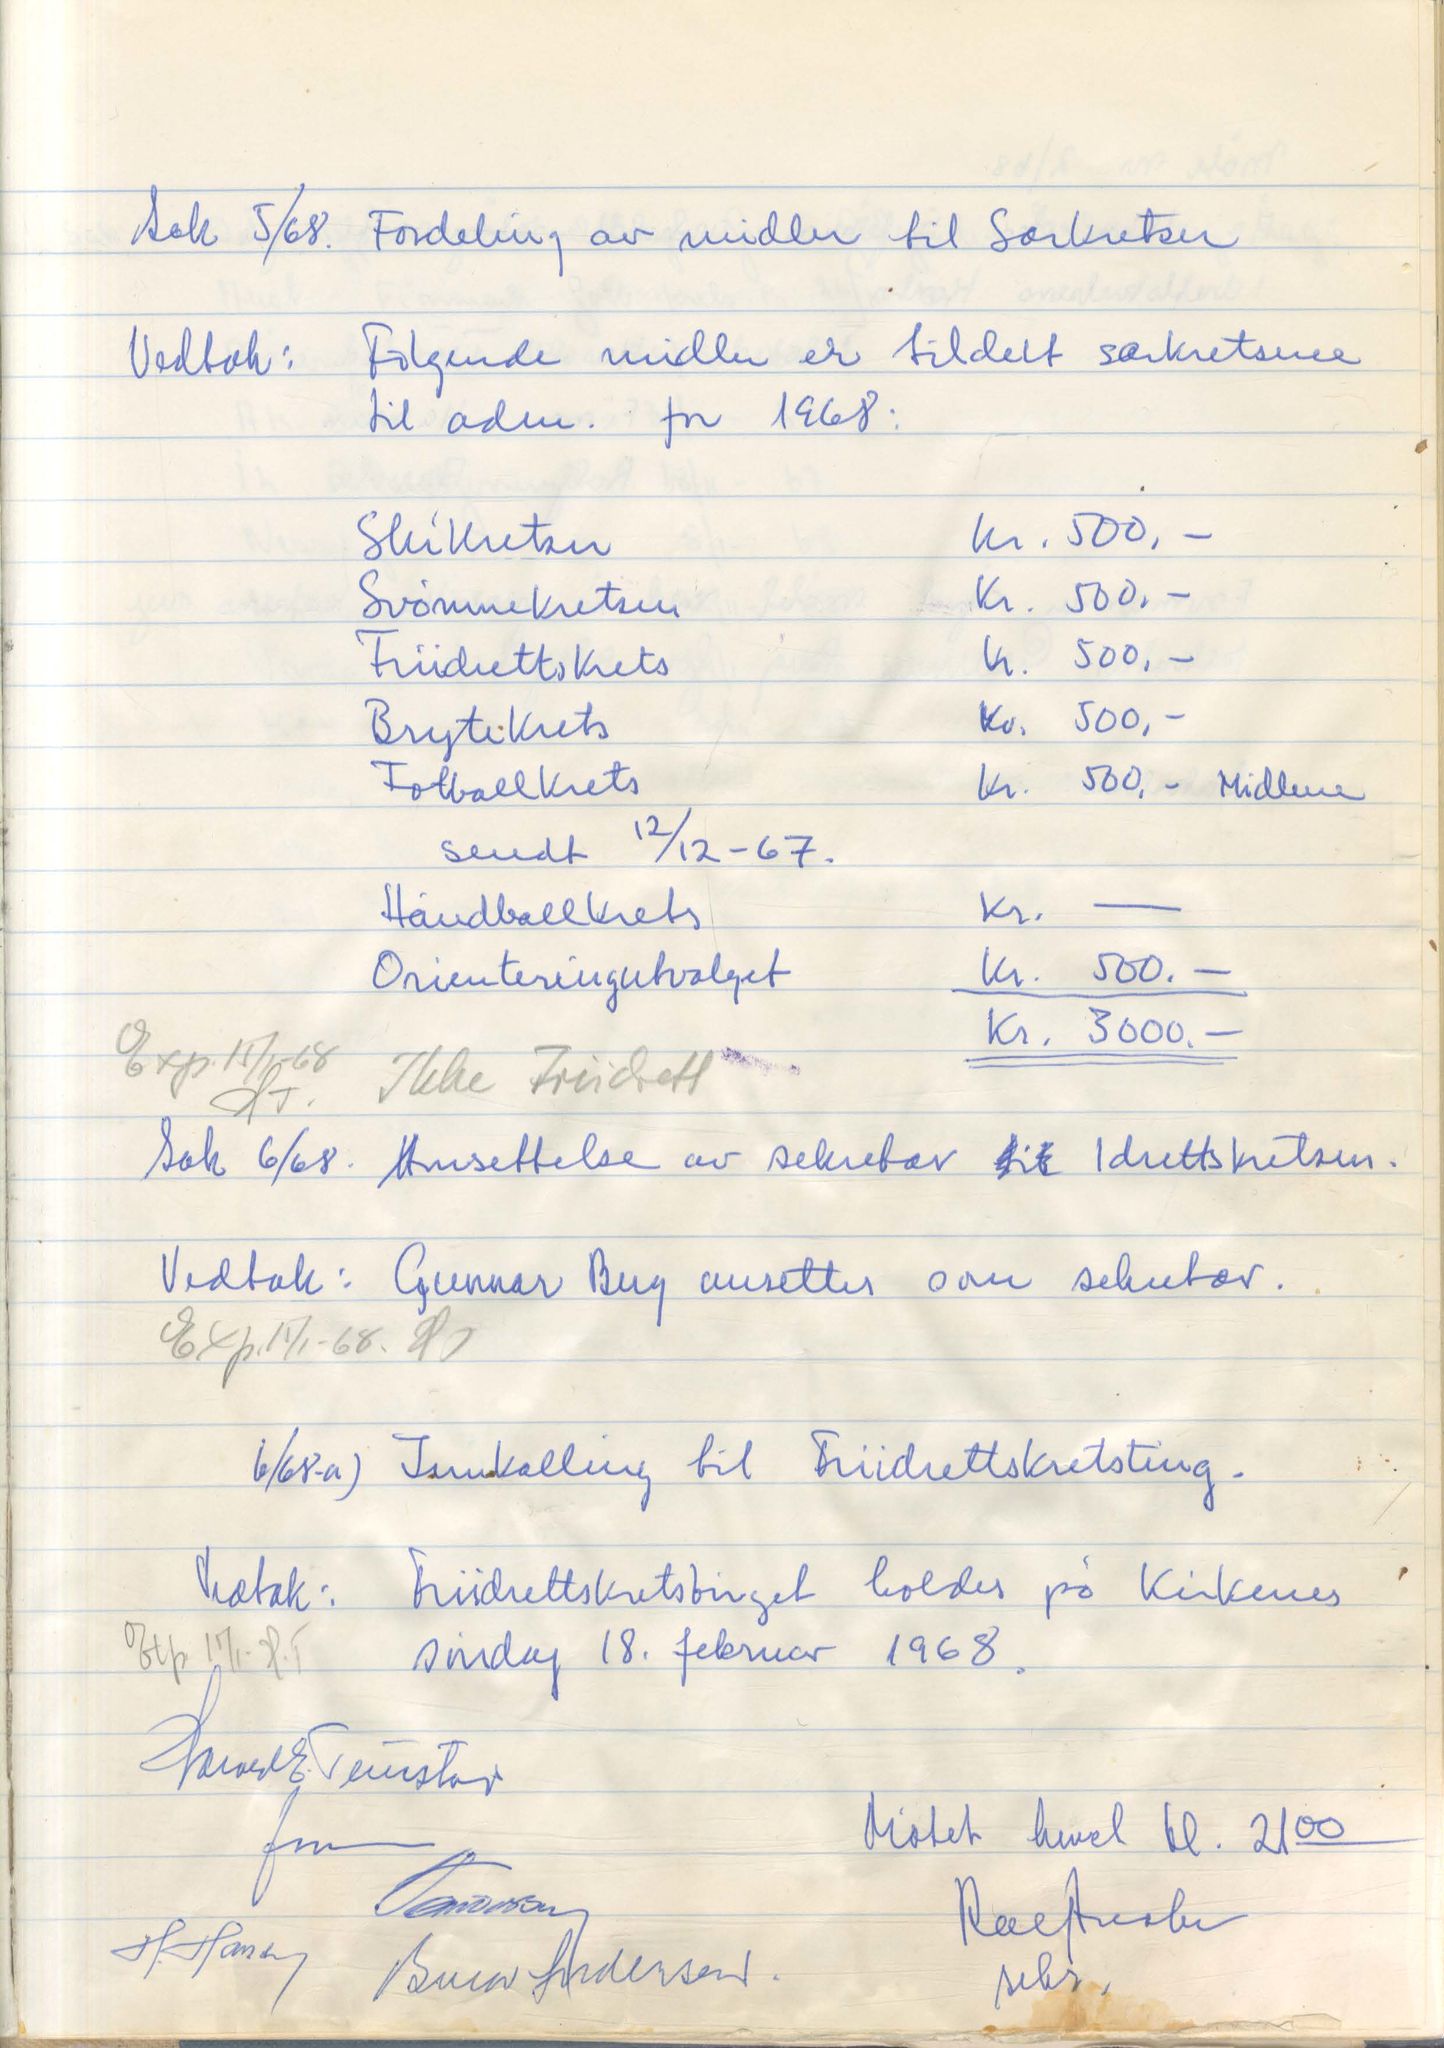 Sak 5/68. Fordeling av midler til Særkretser
Vedtak: Følgende midler er tildelt særkretsene
til adm. for 1968:
Skikretsen Kr. 500,-
Svømmekretsen Kr. 500,-
Friidrettskrets Kr. 500,-
Brytekrets Kr. 500,-
Fotballkrets Kr. 500,- Midlene
sendt 12/12-67.
Håndballkrets Kr. —
Orienteringutvalget Kr. 500.-
Kr. 3000.-
Exp. 15/1-68 Ikke Friidrett
HT.
Sak 6/68. Ansettelse av sekretær Idrettskretsen.
Vedtak: Gunnar Berg ansettes som sekretær.
Exp. 15/1-68. HT
6/68-a) Innkalling til Friidrettskretsting.
Vedtak: Friidrettskretstinget holdes på Kirkenes
Exp 15/1- H.T søndag 18. februar 1968.
Møtet hevet kl. 2100
H. Hansen
Andersen.
sekr.